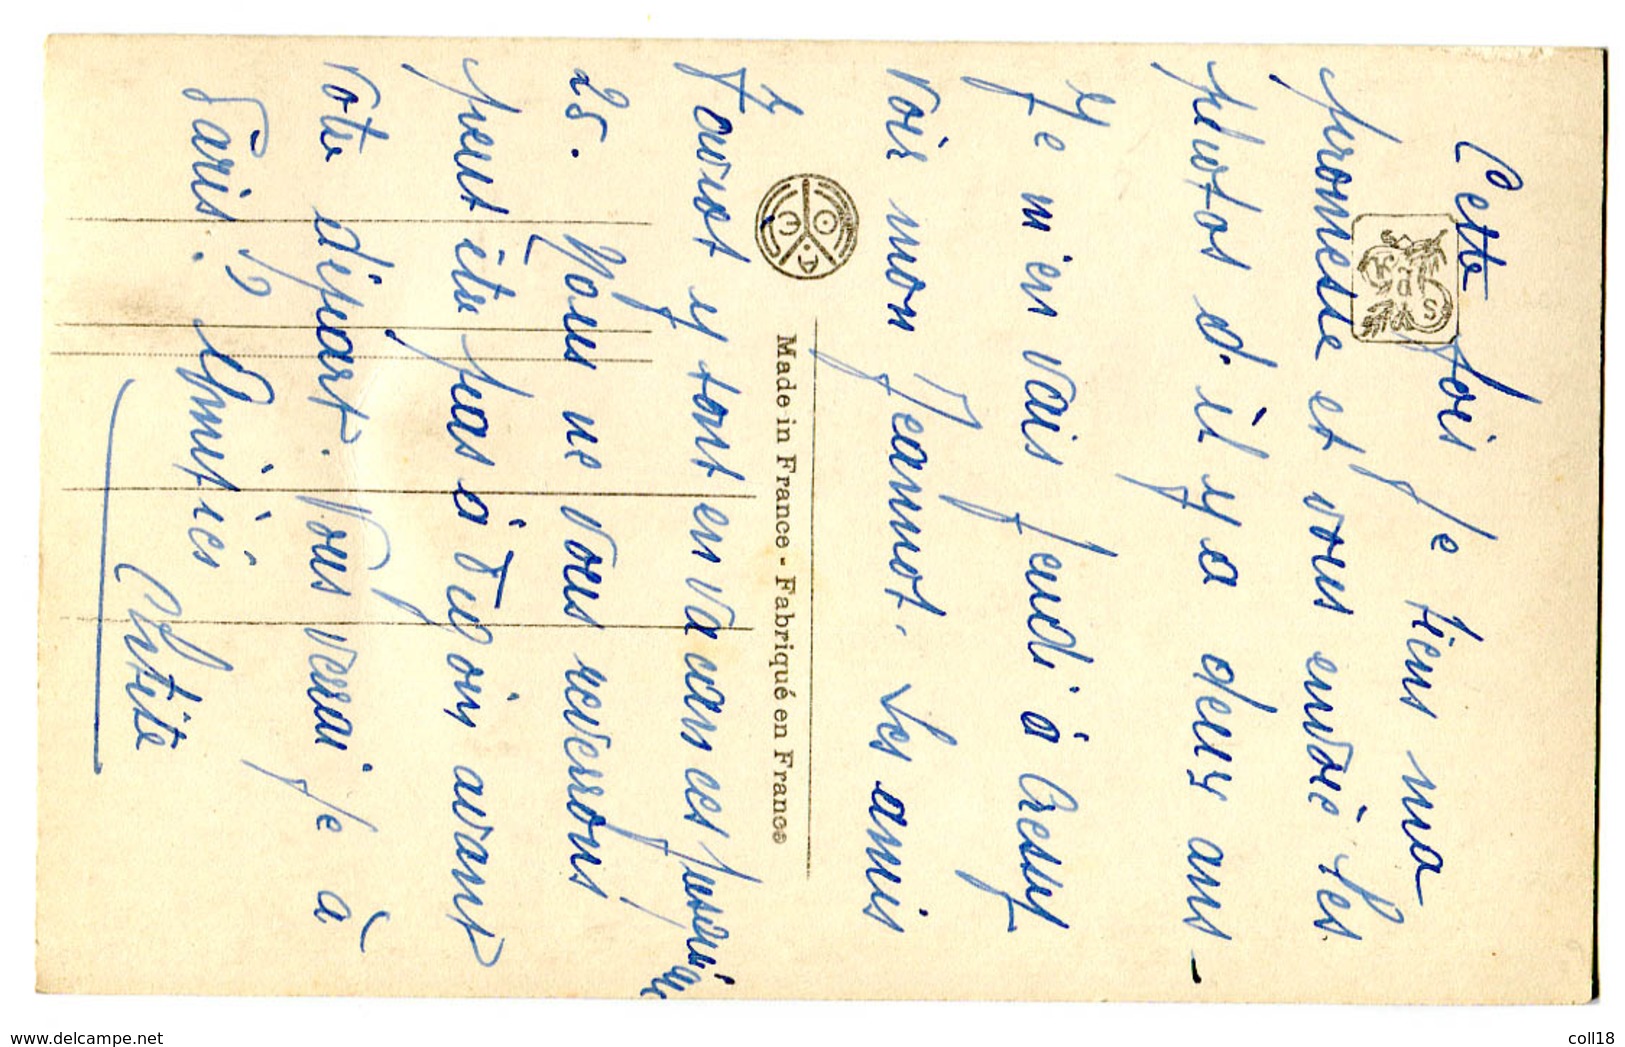 Cette fois je tiens ma
promesse et vous envoie les
photos d'il y a deux ans -
Je m'en vais jeudi à Cressy
voir mon Jeannot. Les amis
Javiot y sont en vacances jusqu'au
25. Nous ne vous reverrons
peut être pas à Dijon avant
votre départ. Vous verrai je à
Paris ? Amitiés
Made in France - Fabriqué en France
www.delcampe.net
coll18